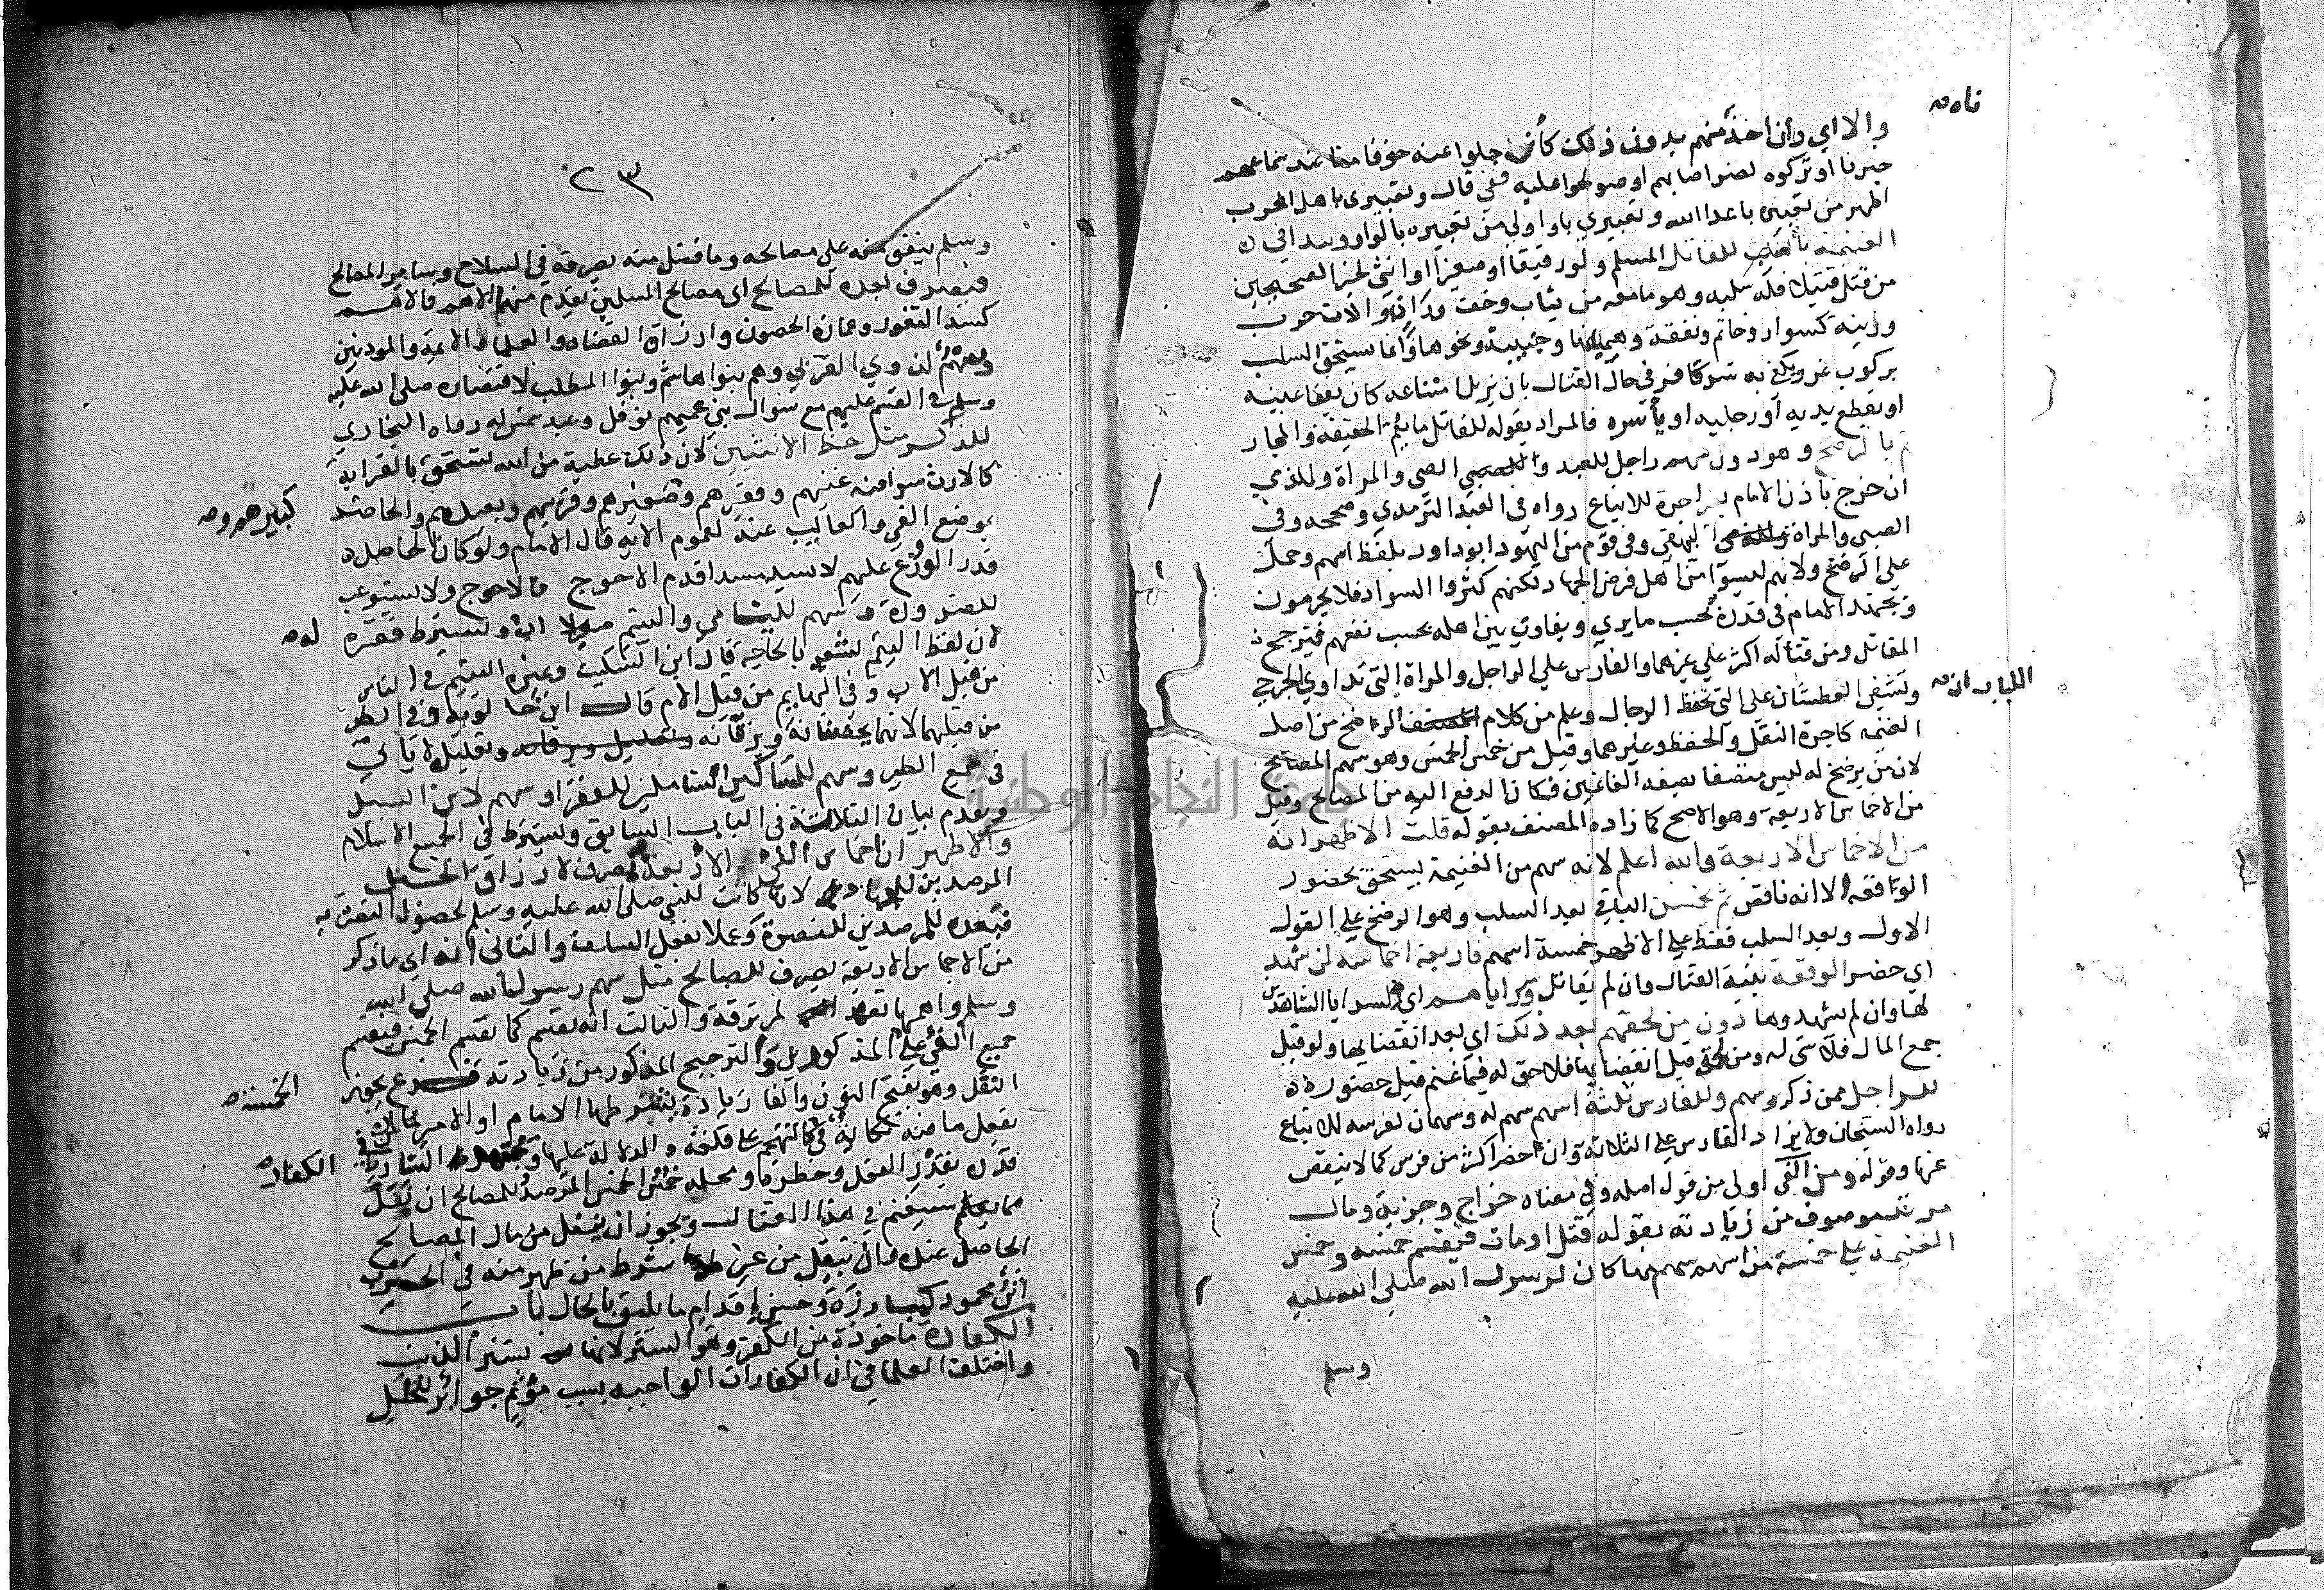 ناه صه
والا اي وان اخذ منهم بدون ذلك كأن جلوا عنه خوفا منا عند سماعهم
خبرنا او تركوه لضر اصابهم او صولحوا عليه ففي قال وتعبيري باهل الحرب
اظهر من تعبيره باعدا الله وتعبيري باو اولى من تعبيره بالواو ويبدا في
الغنيمة بالسلب للقاتل المسلم ولو رقيقا او صغيرا او انثى لخبر الصحيحين
من قتل قتيلا فله سلبه وهو ما معه من ثياب وخف وران والات حرب
وزينة كسوار وخاتم ونفقة وهميانها وجنيبة ونحوها وانما يستحق السلب
بركوب غرر يكفي به شر كافر في حال القتال بان يزيل امتناعه كان يفقا عينيه
او يقطع يديه او رجليه او يأسره فالمراد بقوله للقاتل ما يعم الحقيقة والمجاز
ثم بالرضخ وهو دون سهم راجل للعبد والصبي والمراة وللذمي
ان خرج باذن الامام بلا اجرة للاتباع رواه في العبد الترمذي وصححه وفي
الصبي والمراة البيهقي وفي قوم من اليهود ابو داود بلفظ اسهم وحمل
على الرضخ ولانهم ليسوا من اهل فرض الجهاد لكنهم كثروا السواد فلا يحرمون
ويجتهد الامام في قدره بحسب ما يري ويفاوت بين اهله بحسب نفعهم فيترجح
المقاتل ومن قتاله اكثر علي غيرهما والفارس علي الراجل والمراة التي تداوي الجرحي
وتسقي العطشان على التي تحفظ الرحال وعلم من كلام المصنف الرضخ من اصل
اللباب ان صه
الغنيمة كاجرة النقل والحفظ وغيرهما وقيل من خمس الخمس وهو سهم المصالح
لان من يرضخ له ليس متصفا بصفة الغانمين فكان الدفع اليه من المصالح وقيل
من الاخماس الاربعة وهو الاصح كما زاده المصنف بقوله قلت الاظهر انه
من الاخماس الاربعة والله اعلم لانه سهم من الغنيمة يستحق بحضور
الواقعة الا انه ناقص ثم يخمس الباقي بعد السلب وهو الرضخ علي القول
الاول وبعد السلب فقط علي الاظهر خمسة اسهم فاربعة اخماسه لمن شهد
اي حضر الوقعة بنية القتال وان لم يقاتل وسراياهم اي السرايا الشاهدين
لها وان لم يشهدوها دون من لحقهم بعد ذلك اي بعد انقضايها ولو قبل
جمع المال فلا شي له ومن لحق قبل انقضايها فلا حق له فيما غنم قبل حضوره
للراجل ممن ذكر سهم وللفارس ثلثة اسهم سهم له وسهمان لفرسه للاتباع
رواه الشيخان ولا يزاد الفارس علي الثلاثة وان حضر اكثر من فرس كما لا ينقص
عنها وقوله ومن الفى اولي من قول اصله وفي معناه خراج وجزية ومال
مرتد موصوف من زيادته بقوله قتل او مات فيقسم خمسه وخمس
الغنيمة علي خمسة من اسهم سهم منها كان لرسول الله صلي الله عليه
وسلم
٢٣
وسلم ينفق منه على مصالحه وما فضل منه يصرفه في السلاح وساير المصالح
فيصرف بعده للمصالح اى مصالح المسلمين يقدم منها الاهم فالاهم
كسد الثغور وعمارة الحصون وارزاق القضاه والعلما والايمة والموذنين
وسهم لذوي القربي وهم بنوا هاشم وبنوا المطلب لاقتصاره صلى الله عليه
وسلم في القسم عليهم مع سوال بني عميهم نوفل وعبد شمس له رواه البخاري
للذكر مثل حظ الانثيين لان ذلك عطية من الله تستحق بالقرابة
كالارث سوا منه غنيهم وفقيرهم وصغيرهم وقريبهم وبعيدهم والحاضر
كبيرهم و صه
بموضع الفي والغايب عنه لعموم الاية قال الامام ولو كان الحاصل
قدر الو وزع عليهم لا يسد مسدا قدم الاحوج فالاحوج ولا يستوعب
للضرورة وسهم لليتامي واليتيم صغير لا اب له ويشترط فقره
له صه
لان لفظ اليتيم يشعر بالحاجة قال ابن السكيت وغيره اليتيم في الناس
من قبل الاب وفي البهايم من قبل الام قال ابن خالويه وفي الطير
من قبلهما لانهما يحضنانه ويزقانه وتعليله لا ياتي
في جميع الطير وسهم للمساكين الشاملين للفقرا وسهم لابن السبيل
وتقدم بيان الثلاثة في الباب السابق ويشترط في الجميع الاسلام
والاظهر ان اخماس الفي الاربعة تصرف لارزاق
المرصدين للجهاد لانها كانت للنبي صلى الله عليه وسلم لحصول النصرة به
فبعده للمرصدين للنصرة وعملا بفعل السلف والثاني انه اى ما ذكر
من الاخماس الاربعة يصرف للمصالح مثل سهم رسول الله صلى الله
وسلم واهمها تعهد المرتزقة والثالث انه يقسم كما يقسم الخمس فيقسم
جميع الفي علي المذكورين والترجيح المذكور من زيادته فرع يجوز
الخمسة صه
النفل وهو بفتح النون والفا زيادة يشرطها الامام او الامير لمن
يفعل ما فيه نكاية في الكفار
الكفار صه
قدره بقدر الفعل وخطره ومحله خمس الخمس المرصد للمصالح ان نفل
مما يعلم سيغنم في هذا القتال ويجوز ان ينفل من مال المصالح
الحاصل عنده وان ينفل من غير شرط من ظهر منه في الحرب
اثر محمود كمبارزة وحسن اقدام ما يليق بالحال باب
الكفارة ماخوذة من الكفر وهو الستر لانها تستر الذنب
واختلف العلما في ان الكفارات الواجبة بسبب مؤثم جوابر للخلل